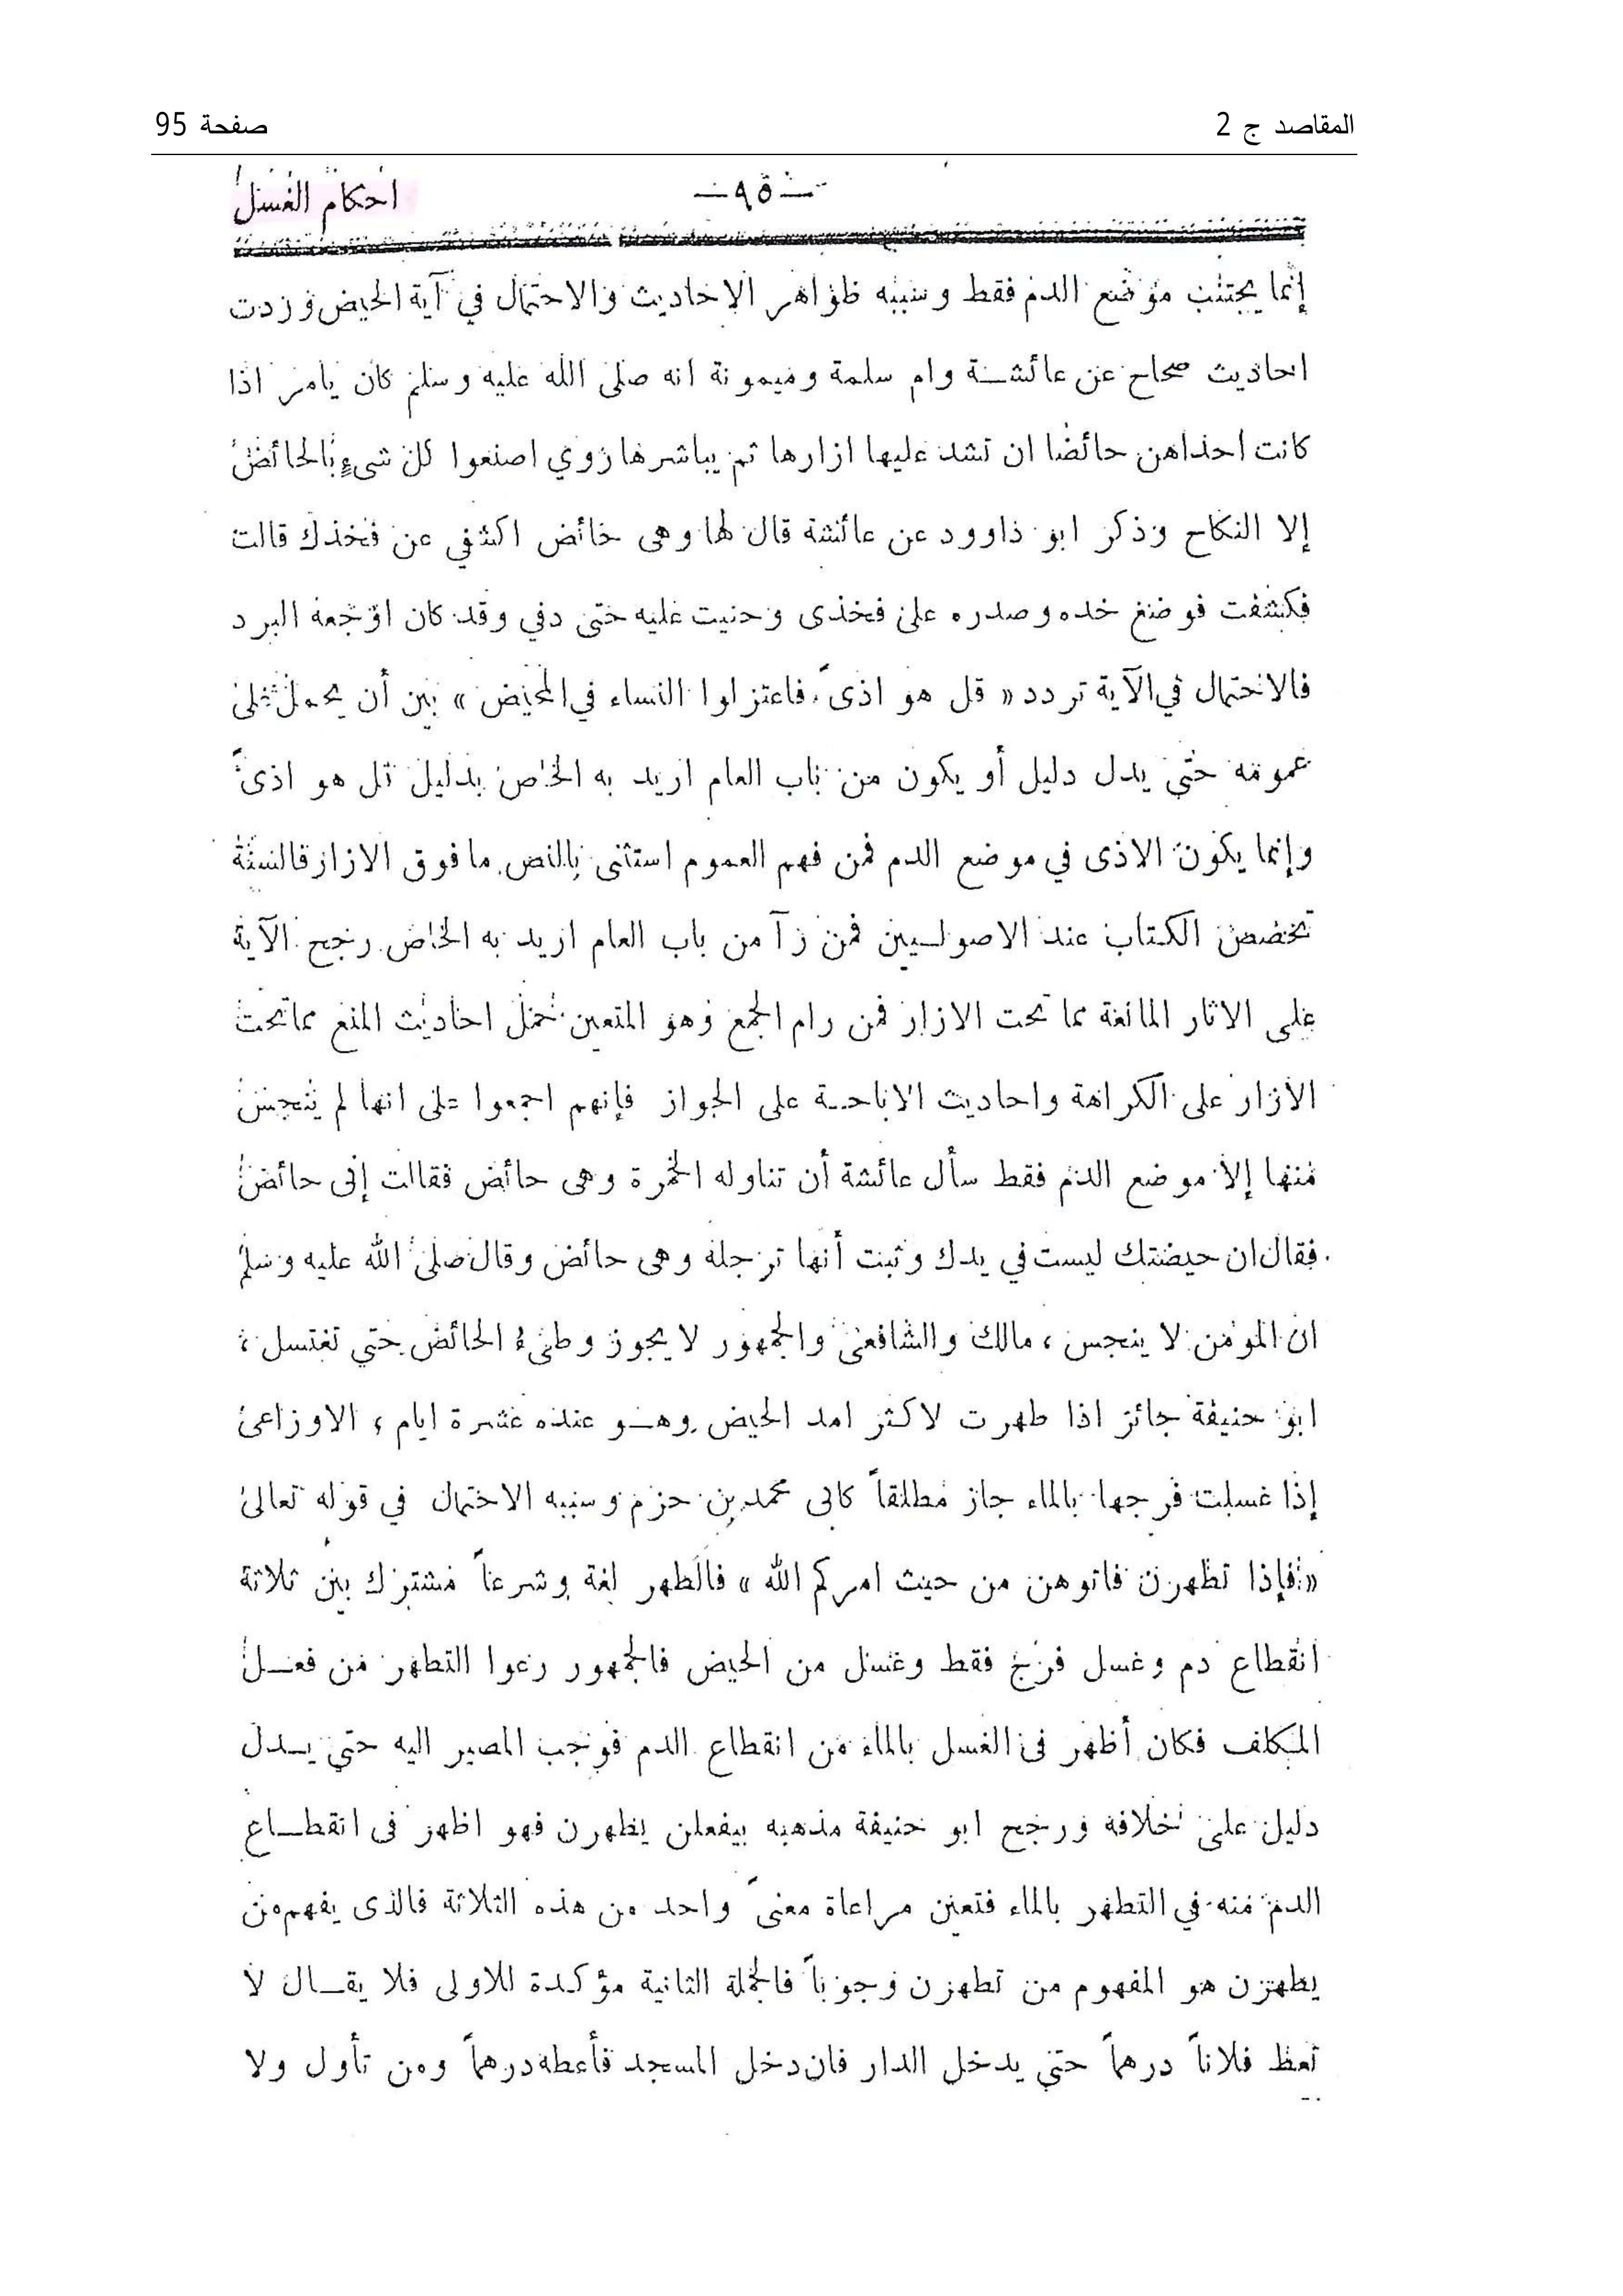 المقاصد ج 2
صفحة 95
— ٩٥ —
احكام الغسل
إنما يجتنب موضع الدم فقط وسببه ظواهر الاحاديث والاحتمال في آية الحيض وردت
احاديث صحاح عن عائشة وام سلمة وميمونة انه صلى الله عليه وسلم كان يامر اذا
كانت احداهن حائضا ان تشد عليها ازارها ثم يباشرها روي اصنعوا كل شىءٍ بالحائض
إلا النكاح وذكر ابو داوود عن عائشة قال لها وهى حائض اكشفي عن فخذك قالت
فكشفت فوضع خده وصدره على فخذى وحنيت عليه حتى دفي وقد كان اوجعه البرد
فالاحتمال في الآية تردد « قل هو اذىً فاعتزلوا النساء في المحيض » بين أن يحمل على
عمومه حتى يدل دليل أو يكون من باب العام اريد به الخاص بدليل قل هو اذىً
وإنما يكون الاذى في موضع الدم فمن فهم العموم استثنى بالنص ما فوق الازار فالسنة
تخصص الكتاب عند الاصوليين فمن رآ من باب العام اريد به الخاص رجح الآية
على الاثار المانعة مما تحت الازار فمن رام الجمع وهو المتعين حمل احاديث المنع مما تحت
الازار على الكراهة واحاديث الاباحة على الجواز فإنهم اجمعوا على انها لم ينجس
منها إلا موضع الدم فقط سأل عائشة أن تناوله الخمرة وهى حائض فقالت إنى حائض
فقال ان حيضتك ليست في يدك وثبت أنها ترجله وهى حائض وقال صلى الله عليه وسلم
ان المومن لا ينجس ، مالك والشافعى والجمهور لا يجوز وطىءُ الحائض حتي تغتسل ،
ابو حنيفة جائز اذا طهرت لاكثر امد الحيض وهو عنده عشرة ايام ، الاوزاعى
إذا غسلت فرجها بالماء جاز مطلقاً كابى محمد بن حزم وسببه الاحتمال في قوله تعالى
« فإذا تطهرن فاتوهن من حيث امركم الله » فالطهر لغة وشرعاً مشترك بين ثلاثة
انقطاع دم وغسل فرج فقط وغسل من الحيض فالجمهور رعوا التطهر من فعل
المكلف فكان أظهر فى الغسل بالماء من انقطاع الدم فوجب المصير اليه حتى يدل
دليل على خلافه ورجح ابو حنيفة مذهبه بيفعلن يطهرن فهو اظهر فى انقطاع
الدم منه في التطهر بالماء فتعين مراعاة معنىً واحد من هذه الثلاثة فالذى يفهم من
يطهرن هو المفهوم من تطهرن وجوباً فالجملة الثانية مؤكدة للاولى فلا يقال لا
تعط فلاناً درهماً حتى يدخل الدار فان دخل المسجد فأعطه درهماً ومن تأول ولا